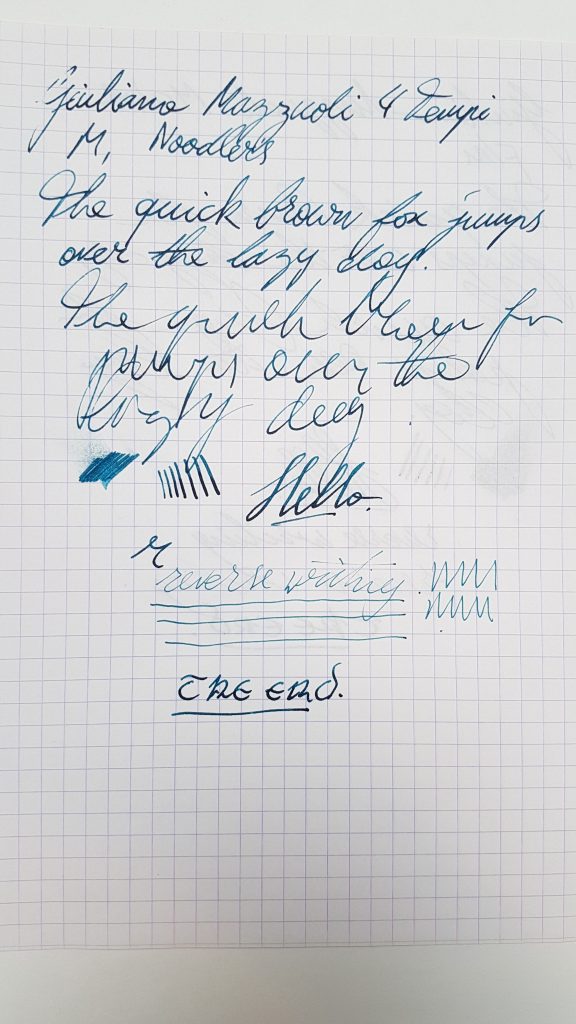 Giuliano Mazzuoli 4 Tempi
M, Noodlers
The quick brown fox jumps
over the lazy dog.
The quick brown fox
jumps over the
lazy dog
Hello.
reverse writing
THE END.